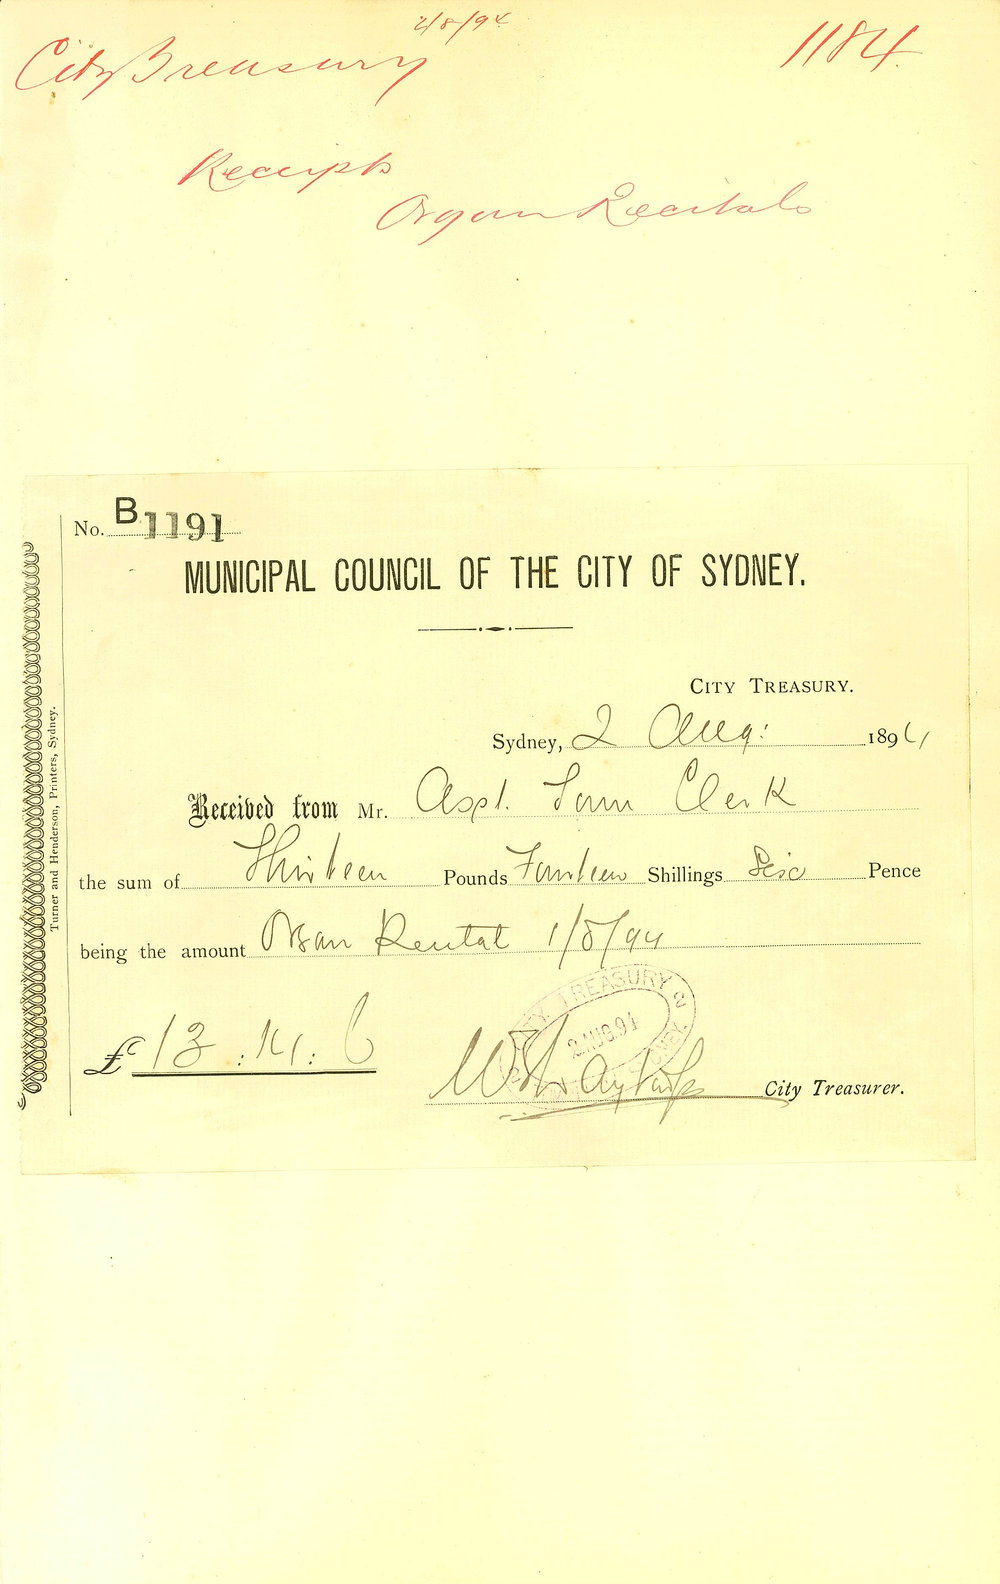 2/8/94
City Treasury
1184
Receipts
Organ Recitals
No. B1191
MUNICIPAL COUNCIL OF THE CITY OF SYDNEY.
CITY TREASURY.
Sydney, 2 Aug: 1894
Received from Mr. Asst. Town Clerk
the sum of Thirteen Pounds Fourteen Shillings Six Pence
being the amount Organ Recital 1/8/94
£ 13 : 14 : 6
CITY TREASURY
2 AUG. 94
SYDNEY.
City Treasurer.
Turner and Henderson, Printers, Sydney.